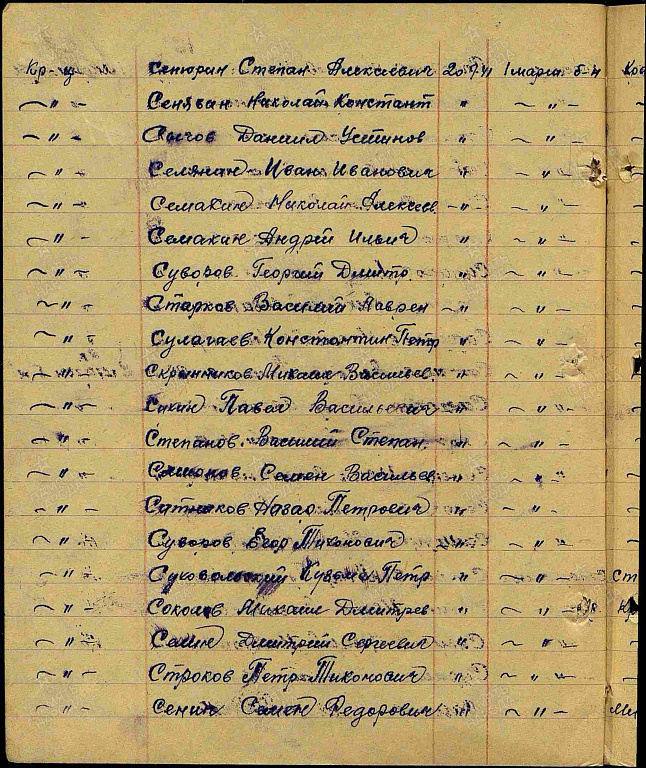 Кр-ц Сенюрин Степан Алексеевич 20.7.41 1 марш б-н
~ " - Сеняван Николай Констант " ~ " -
~ " - Сычов Даниил Устинов " ~ " -
~ " - Селянин Иван Иванович " ~ " -
~ " - Семакин Николай Алексеев - " - ~ " -
~ " - Семакин Андрей Ильич " ~ " -
~ " - Суворов Георгий Дмитр. " ~ " -
~ " - Старков Василий Лаврен - " ~ " -
~ " - Сулагаев Константин Петр " ~ " -
~ " - Скринников Михаил Васильев. " ~ " -
~ " - Павел Васильевич " ~ " -
~ " - Степанов Василий Степан. " ~ " -
~ " - Семен Васильев " ~ " -
~ " - Ситников Назар Петрович " ~ " -
~ " - Суворов Егор Тихонович " ~ " -
~ " - Кузьма Петр " ~ " - Ст
~ " - Соколов Михаил Дмитрев " ~ " -
~ " - Семин Дмитрий Сергеевич " ~ " -
~ " - Строков Петр Тихонович " ~ " -
~ " - Сенин Семен Федорович " ~ " -